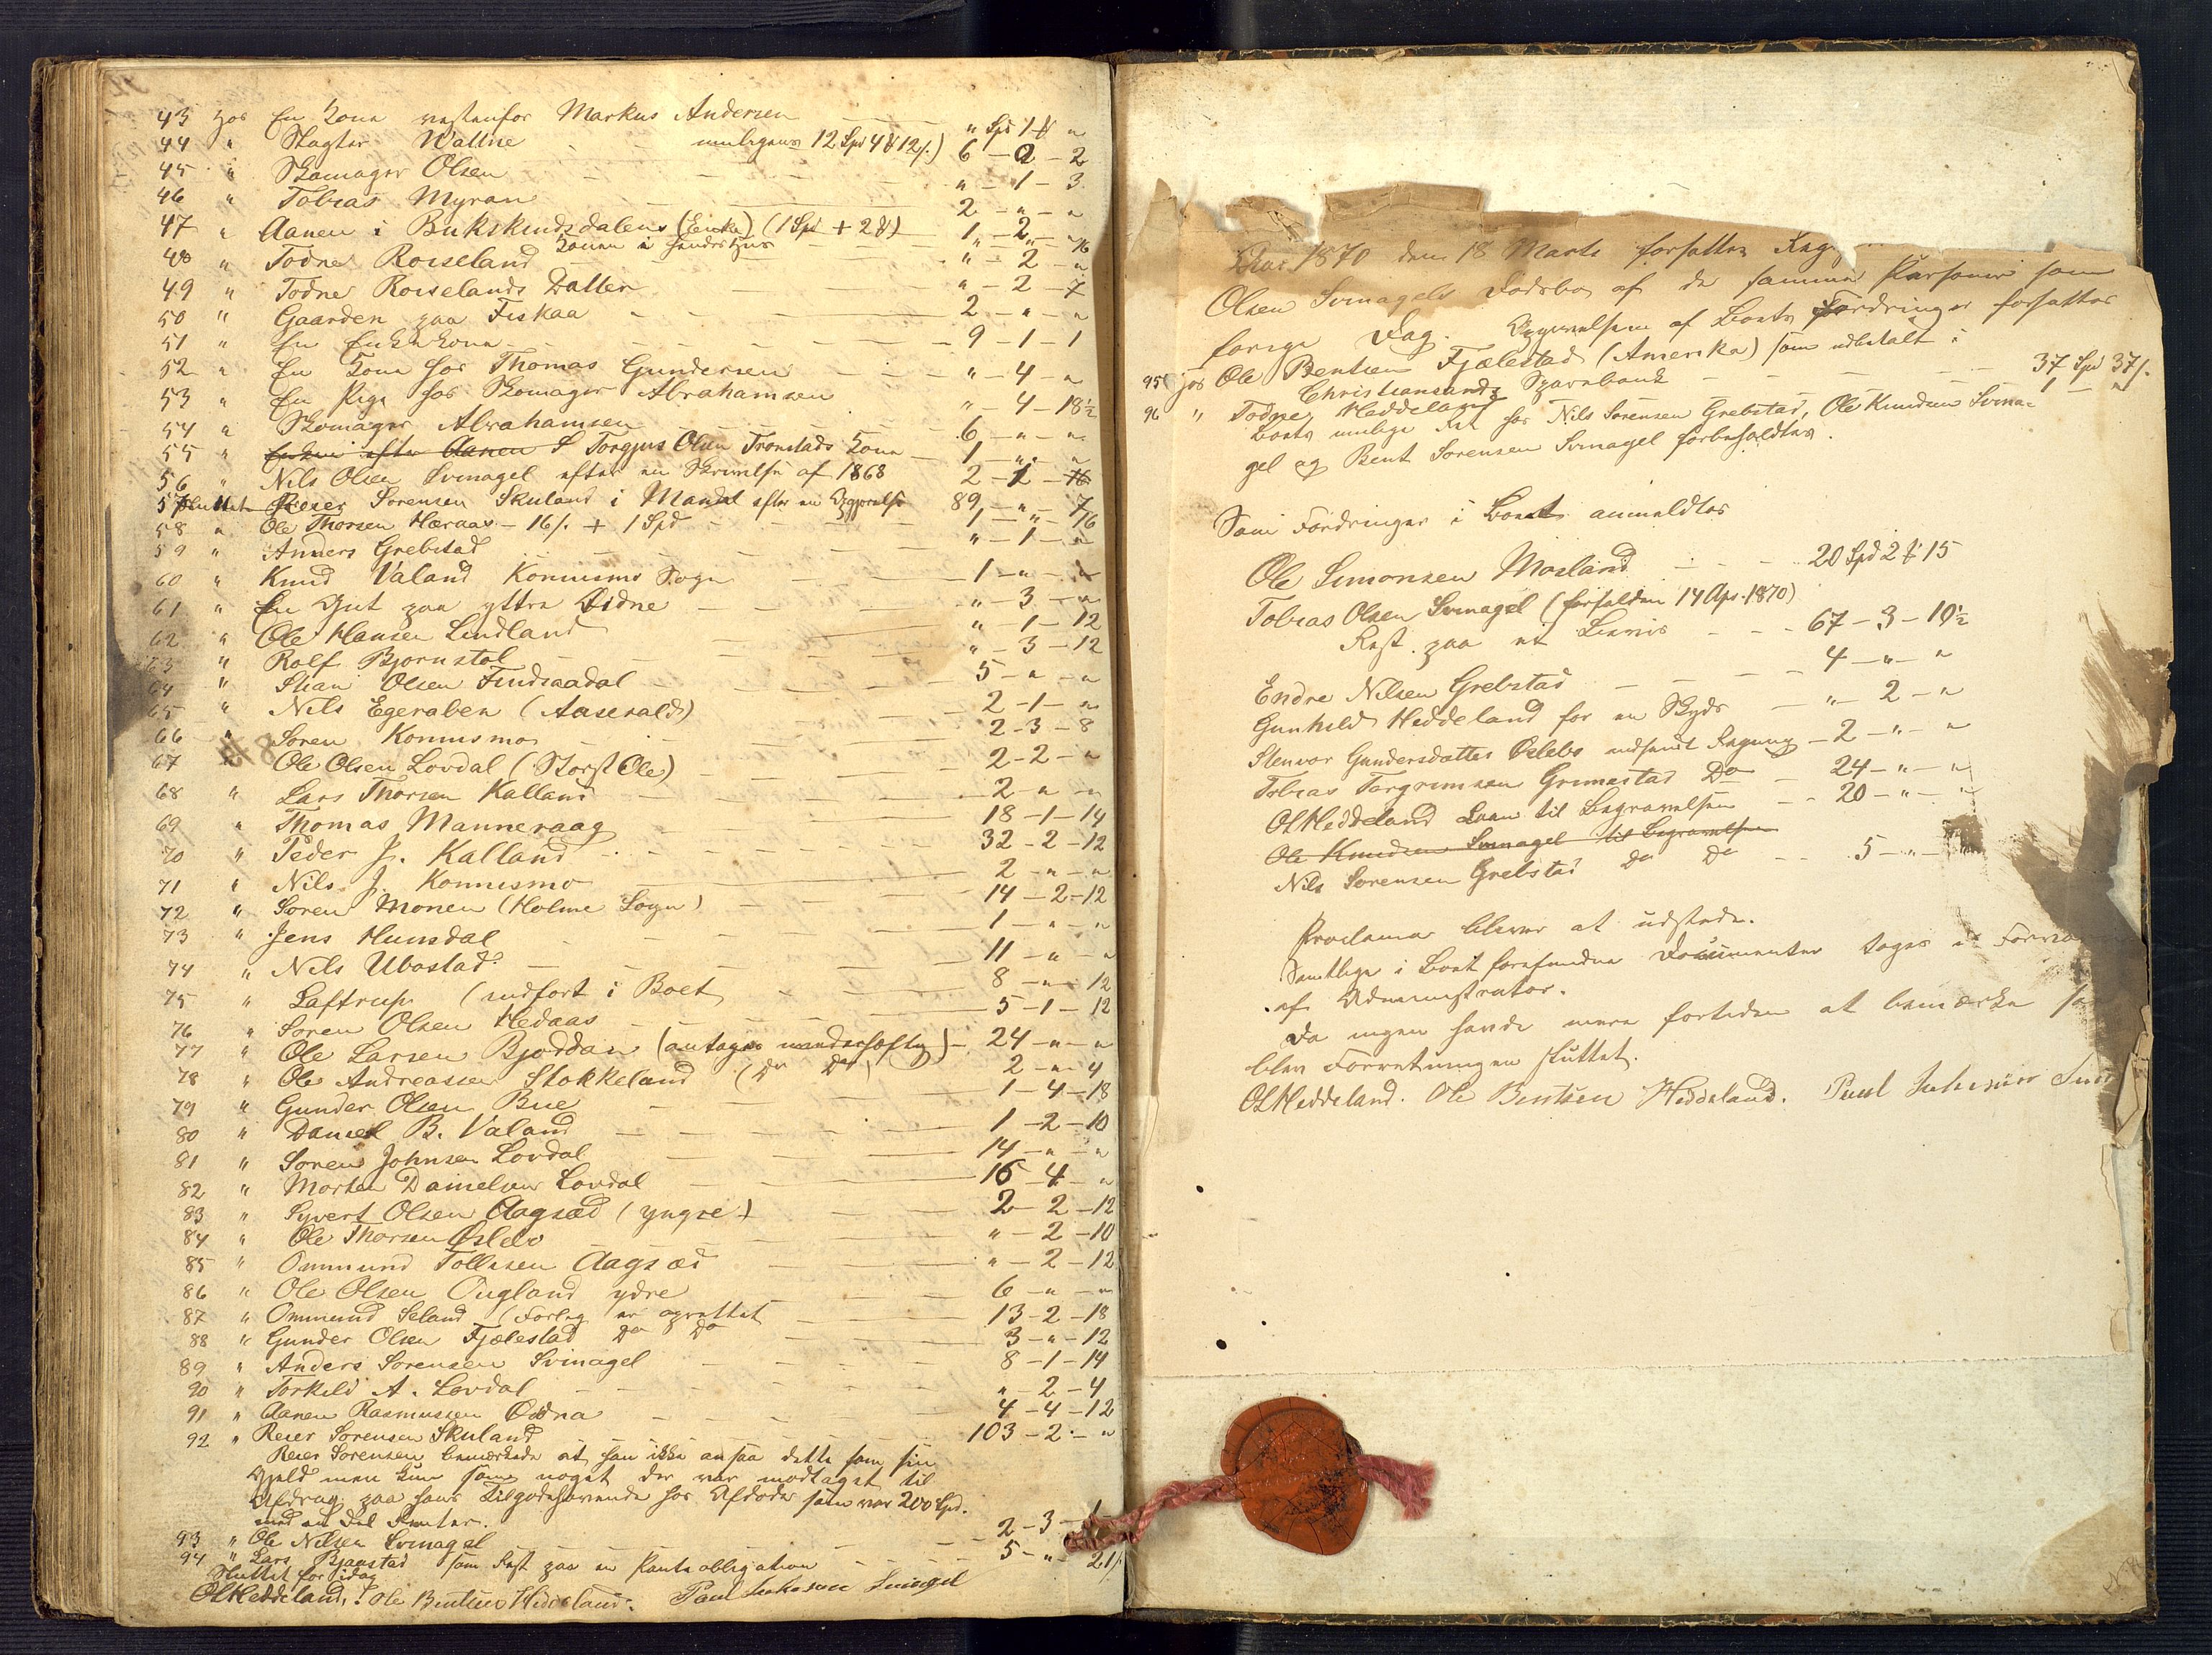 43 hos En Kone vestenfor Markus Andersen — — " Spd 1 ₰ "
44 " Slagter Wattne muligens 12 Spd 4 ₰ 12 /.) 6 - 0 - 2
45 " Skomager Olsen — — — " - 1 - 3
46 " Tobias Myran — — 2 - " - "
47 " Aanen i Bukskindsdalens (Enke) (1 Spd + 2 ₰) 1 - 2 - "
48 " Todne Roiseland Konen i hendes Huus — " - " - 16
49 " Todne Roiselands Datter — — " - 2 - 7
50 " Gaarden paa Fiskaa — — 2 - " - "
51 " En Enkekone — — 9 - 1 - 1
52 " En Kone hos Thomas Gundersen — " - 4 - "
53 " En Pige hos Skomager Abrahamsen " - 4 - 18½
54 " Skomager Abrahamsen 6 - " - "
55 " Enken efter Aanen S Torgjus Olsen Tronstads Kone — 1 - " - "
56 " Nils Olsen Svinagel efter en Skrivelse af 1868 2 - 1 - 16
57 Reier Sorensen Skuland i Mandal efter en Opgjorelse 89 - " - 7
58 " Ole Thorsen Haraas - 16 /. + 1 Spd 1 - " - 16
59 " Anders Grebstad " - 1 - "
60 " Knud Valand Konnismo Sogn — 1 - " - "
61 " En Gut paa yttre Oidne — " - 3 - "
62 " Ole Hansen Lindland — " - 1 - 12
63 " Rolf Bjornstol — " - 3 - 12
64 " Stian Olsen Findsaadal — 5 - " - "
65 " Nils Egeraben (Aaserald) — 2 - 1 - "
66 " Soren Konnismo — 2 - 3 - 8
67 " Ole Olsen Lovdal (Storst Ole) — 2 - 2 - "
68 " Lars Thorsen Kalland — 2 - " - "
69 " Thomas Manneraag — 18 - 1 - 14
70 " Peder J. Kalland — 32 - 2 - 12
71 " Nils J. Konnismo — 2 - " - "
72 " Soren Monen (Holme Sogn) — 14 - 2 - 12
73 " Jens Hunsdal — 1 - " - "
74 " Nils Ubostad — 11 - " - "
75 " Laftrup (indfort i Boet — 8 - " - 12
76 " Soren Olsen Hedaas — 5 - 1 - 12
77 " Ole Larsen Bjoddan (antages uanderhoftig) — 24 - " - "
78 " Ole Andreassen Stokkeland (Do Do) 2 - " - 4
79 " Gunder Olsen Bue — 1 - 4 - 18
80 " Daniel B. Valand — 1 - 2 - 10
81 " Soren Johnsen Lovdal — 14 - " - "
82 " Morten Danielsen Lovdal — 16 - 4 - "
83 " Syvert Olsen Aagsæd (yngre) — 2 - 2 - 12
84 " Ole Thorsen Oslebo — " - 2 - 10
85 " Ommund Tollefsen Aagsæd — " - 2 - 12
86 " Ole Olsen Ougland ydre — 6 - " - "
87 " Ommund Seland (Forlig er oprettet — 13 - 2 - 18
88 " Gunder Olsen Fjælestad Do Do — 3 - " - 12
89 " Anders Sorensen Svinagel — 8 - 1 - 14
90 " Torkild A. Lovdal — " - 2 - 4
91 " Aanen Rasmussen Oidna — 4 - 4 - 12
92 " Reier Sorensen Skuland — 103 - 2 - "
Reier Sorensen bemærkede at han ikke ansaa dette som sin
Gjeld men kun som noget der var modtaget til
Afdrag paa hans Tilgodehavende hos Afdode som var 200 Spd.
med en Del Renter.
93 " Ole Nilsen Svinagel — 2 - 3 - 1
94 " Lars Bjaastad som Rest paa en Panteobligation — 5 - " - 21 /.
Sluttet for idag
OLHeddeland. Ole Bentsen Heddeland. Paul Svinagel
Aar 1870 den 18 Marts forsattes
Olsen Svinagels Dodsbo af de samme Personer som
forrige Dag. Opgivelsen af Boets Fordringer forsattes
95 hos Ole Bentsen Fjælestad (Amerika) som udbetalt i
Christiansands Sparebank — — 37 Spd 37 /.
96 " Todne Heddeland — — 1 - "
Boets mulige Ret hos Nils Sorensen Grebstad, Ole Knudsen Svina-
gel og Bent Sorensen Svinagel forbeholdtes.
Som Fordringer i Boet anmeldtes
Ole Simonsen Mosland — — 20 Spd 2 ₰ 15
Tobias Olsen Svinagel (forfalden 14 Apr. 1870)
Rest paa et Laan — — 67 - 3 - 10½
Endre Nilsen Grebstad — — 4 - " - "
Gunhild Heddeland for en Skyds — " - 2 - "
Stenvor Gundersdatter Oslebo indsendt Regning — 2 - " - "
Tobias Torgrimsen Grimestad Do — 24 - " - "
OLHeddeland Laan til Begravelsen — 20 - " - "
Ole Knudsen Svinagel til Begravelsen
Nils Sorensen Grebstad Do Do — 5 - " -
Proclama bliver at udstede.
Samtlige i Boet forefundne Documenter toges i
af Administrator.
Da ingen havde mere fortiden at bemærke
blev Forretningen sluttet.
OLHeddeland. Ole Bentsen Heddeland. Paul